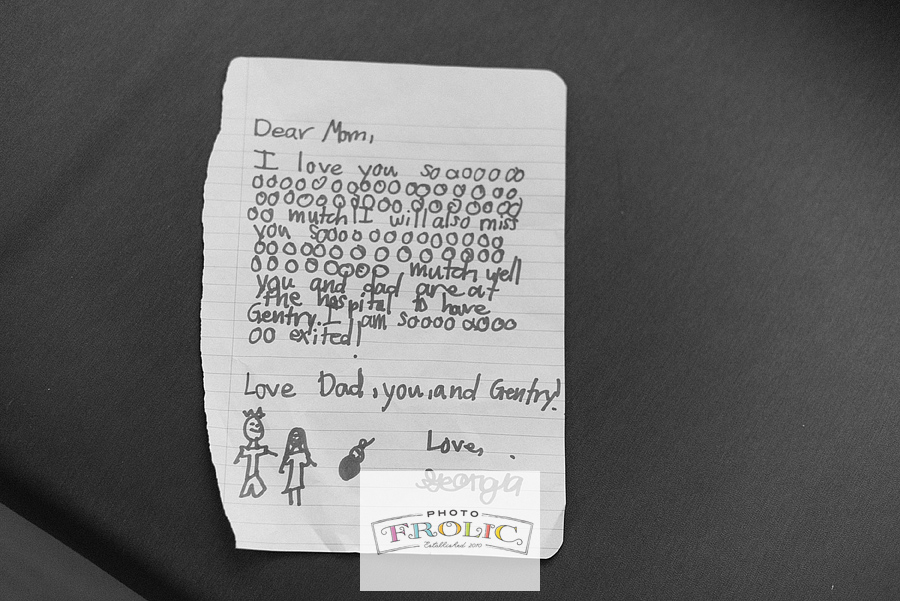 Dear Mom,
I love you sooooooo
oooooooooooooooooooo
oooooooooooooooooooo
oo mutch! I will also miss
you sooooooooooooooo
ooooooooooooooo
oooooooooo mutch well
you and dad are at
the hospital to have
Gentry. I am soooooooo
oo exited!
Love Dad, you, and Gentry!
Love,
Georgia
PHOTO
FROLIC
Established 2010